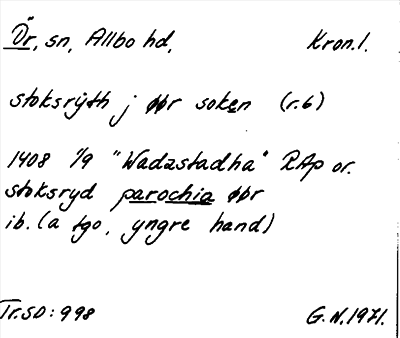 Ör, sn, Allbo hd, Kron.l.
stoksryth j øbr soken (r.6)
1408 1/9 "Wadzstadha" RAp or.
stoksryd parochia øbr
ib. (a tgo, yngre hand)
Tr.SD: 998 G.N.1971.